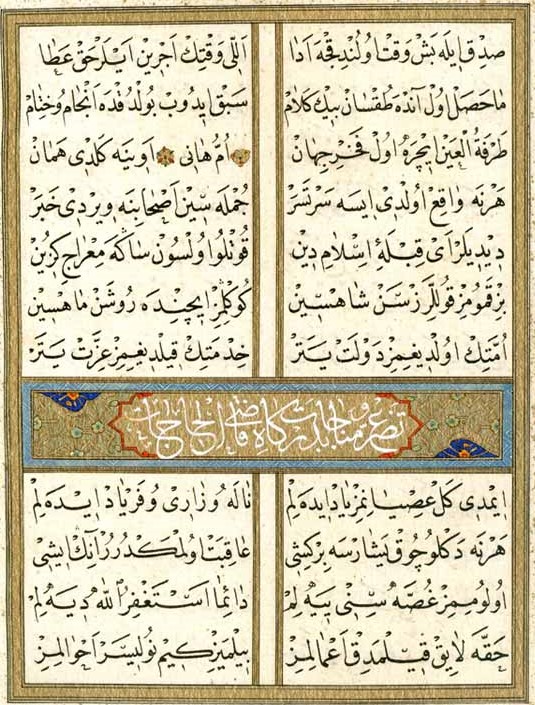 صدق ایله بش وقت اولندقجه ادا
اللی وقتك اجرین ایلر حق عطا
ماحصل اول آنده طقسان بیك كلام
سبق ایدوب بولدقده انجام و ختام
طرفة العین ایچره اول فخر جهان
ام هانی اوینه كلدی همان
هرنه واقع اولدی ایسه سرتسر
جمله سین اصحابنه ویردی خبر
دیدیلر ای قبلهٔ اسلام دین
قوتلو اولسون ساكه معراج گزین
بز قمومز قوللرز سن شاهسین
كوكلمز ایچنده روشن ماهسین
امتك اولدیغمز دولت یتر
خدمتك قیلدیغمز عزت یتر
تضرع و مناجات بدركاه قاضی الحاجات
ایمدی كل عصیانمز یاد ایده لم
ناله و زاری و فریاد ایده لم
هرنه دكلو چوق یشارسه بر كشی
عاقبت اولمكدرر آنك ایشی
اولومز غصه سنی ییه لم
دائما استغفر الله دیه لم
حقه لایق قیلمدق اعمالمز
بیلمیز كیم نولیسر احوالمز